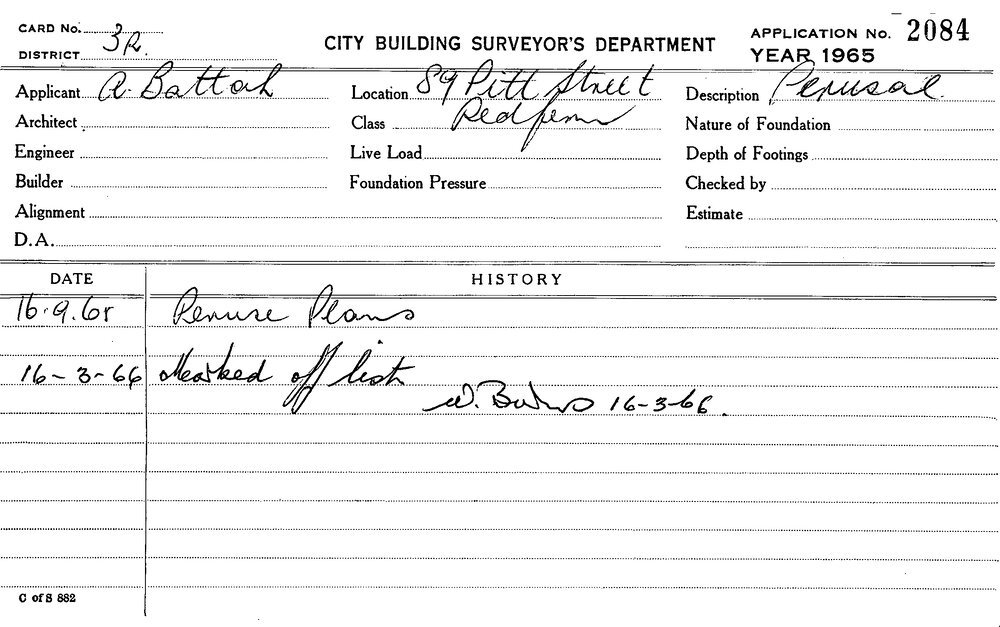 CARD No.
DISTRICT 3R.
CITY BUILDING SURVEYOR'S DEPARTMENT
APPLICATION No. 2084
YEAR 1965
Applicant A. Battah Location 89 Pitt Street Description Perusal.
Architect Class Redfern Nature of Foundation
Engineer Live Load Depth of Footings
Builder Foundation Pressure Checked by
Alignment Estimate
D.A.
DATE HISTORY
16.9.65 Peruse Plans
16-3-66 Marked off list
W. 16-3-66.
C of S 882